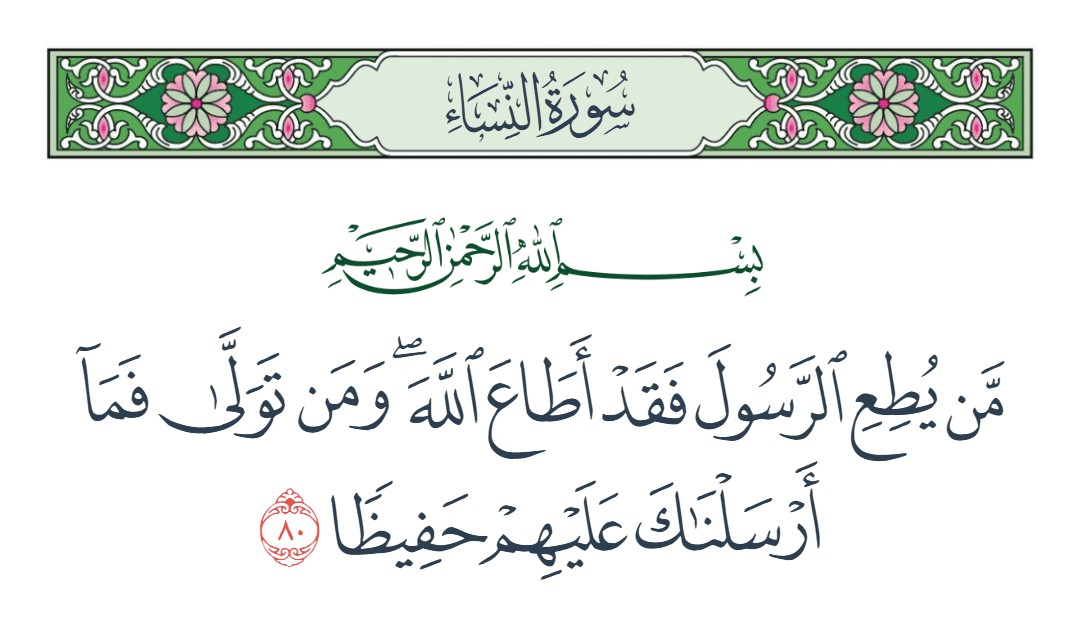 سُورَةُ النِّسَاءِ
بِسْمِ ٱللَّهِ ٱلرَّحْمَٰنِ ٱلرَّحِيمِ
مَّن يُطِعِ ٱلرَّسُولَ فَقَدْ أَطَاعَ ٱللَّهَ ۖ وَمَن تَوَلَّىٰ فَمَآ
أَرْسَلْنَٰكَ عَلَيْهِمْ حَفِيظًا ٨٠